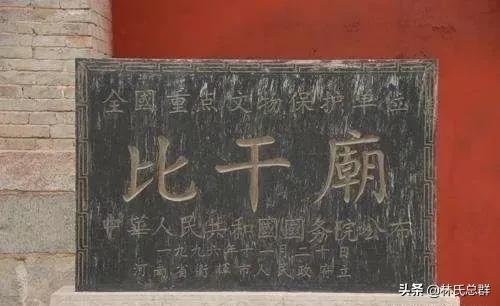 全國重点文物保护单位
比干廟
中華人民共和國國务院公布
一九九六年十一月二十日
河南省衛輝市人民政府立
头条 @林氏总群